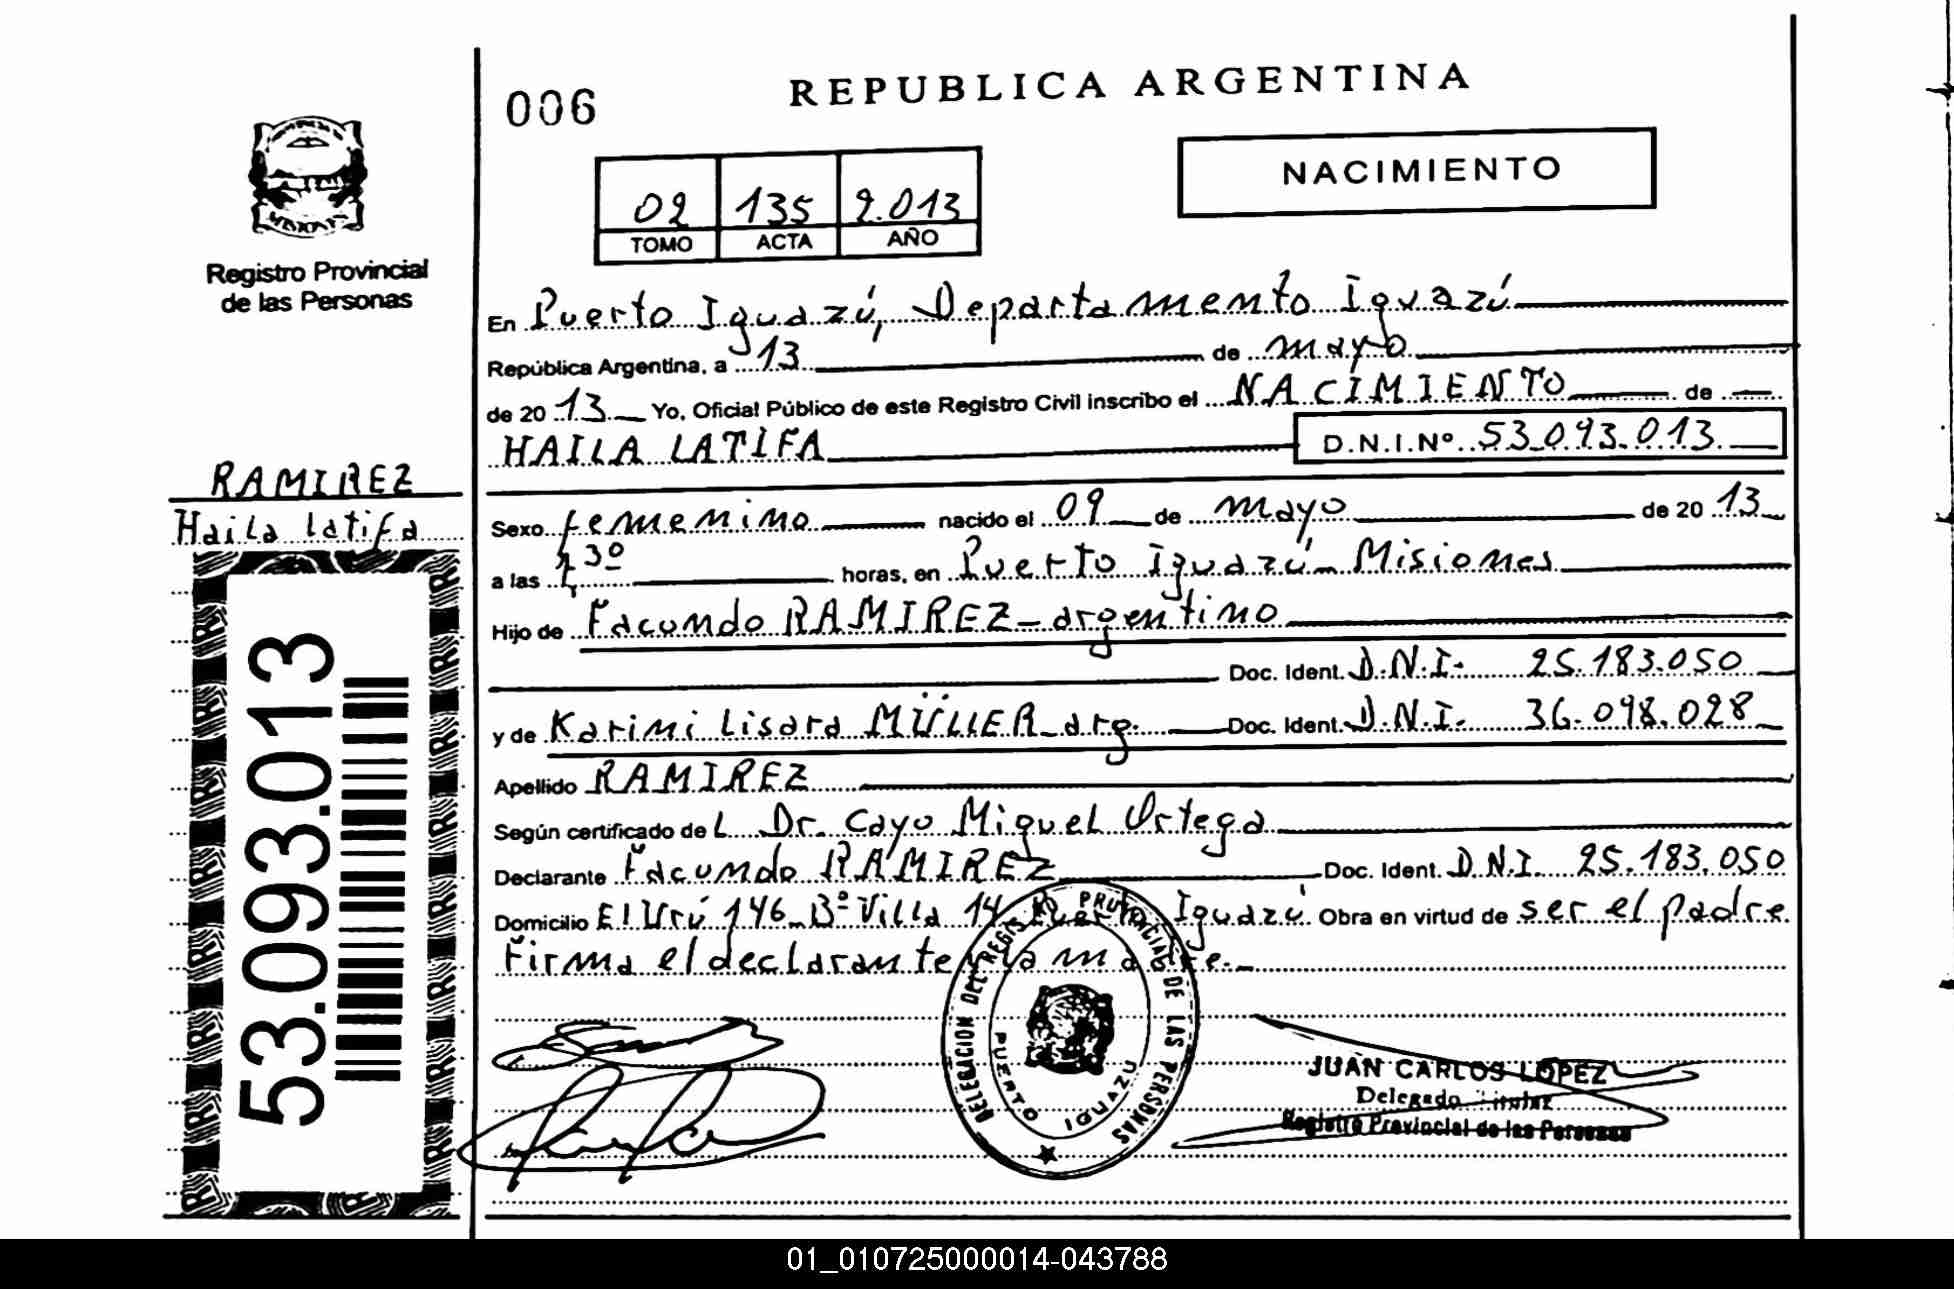 006
REPUBLICA ARGENTINA
NACIMIENTO
02 135 2.013
TOMO ACTA AÑO
Registro Provincial
de las Personas
RAMIREZ
Haila latifa
53.093.013
En Puerto Iguazú, Departamento Iguazú
República Argentina, a 13 de mayo
de 20 13 Yo, Oficial Público de este Registro Civil inscribo el NACIMIENTO de
HAILA LATIFA D.N.I.Nº 53.093.013
Sexo femenino nacido el 09 de mayo de 20 13
a las 7 30 horas, en Puerto Iguazú - Misiones
Hijo de Facundo RAMIREZ - argentino
Doc. Ident. D.N.I. 25.183.050
y de Karimi Lisara MÜLLER - arg. Doc. Ident. D.N.I. 36.098.028
Apellido RAMIREZ
Según certificado del Dr. Cayo Miguel Ortega
Declarante Facundo RAMIREZ Doc. Ident. D.N.I. 25.183.050
Domicilio El Urú 146 - Bº Villa 14 - Puerto Iguazú. Obra en virtud de ser el padre
Firma el declarante y la madre.-
DELEGACION DEL REGISTRO PROVINCIAL DE LAS PERSONAS
PUERTO IGUAZU
JUAN CARLOS LOPEZ
Delegado Titular
Registro Provincial de las Personas
01_010725000014-043788